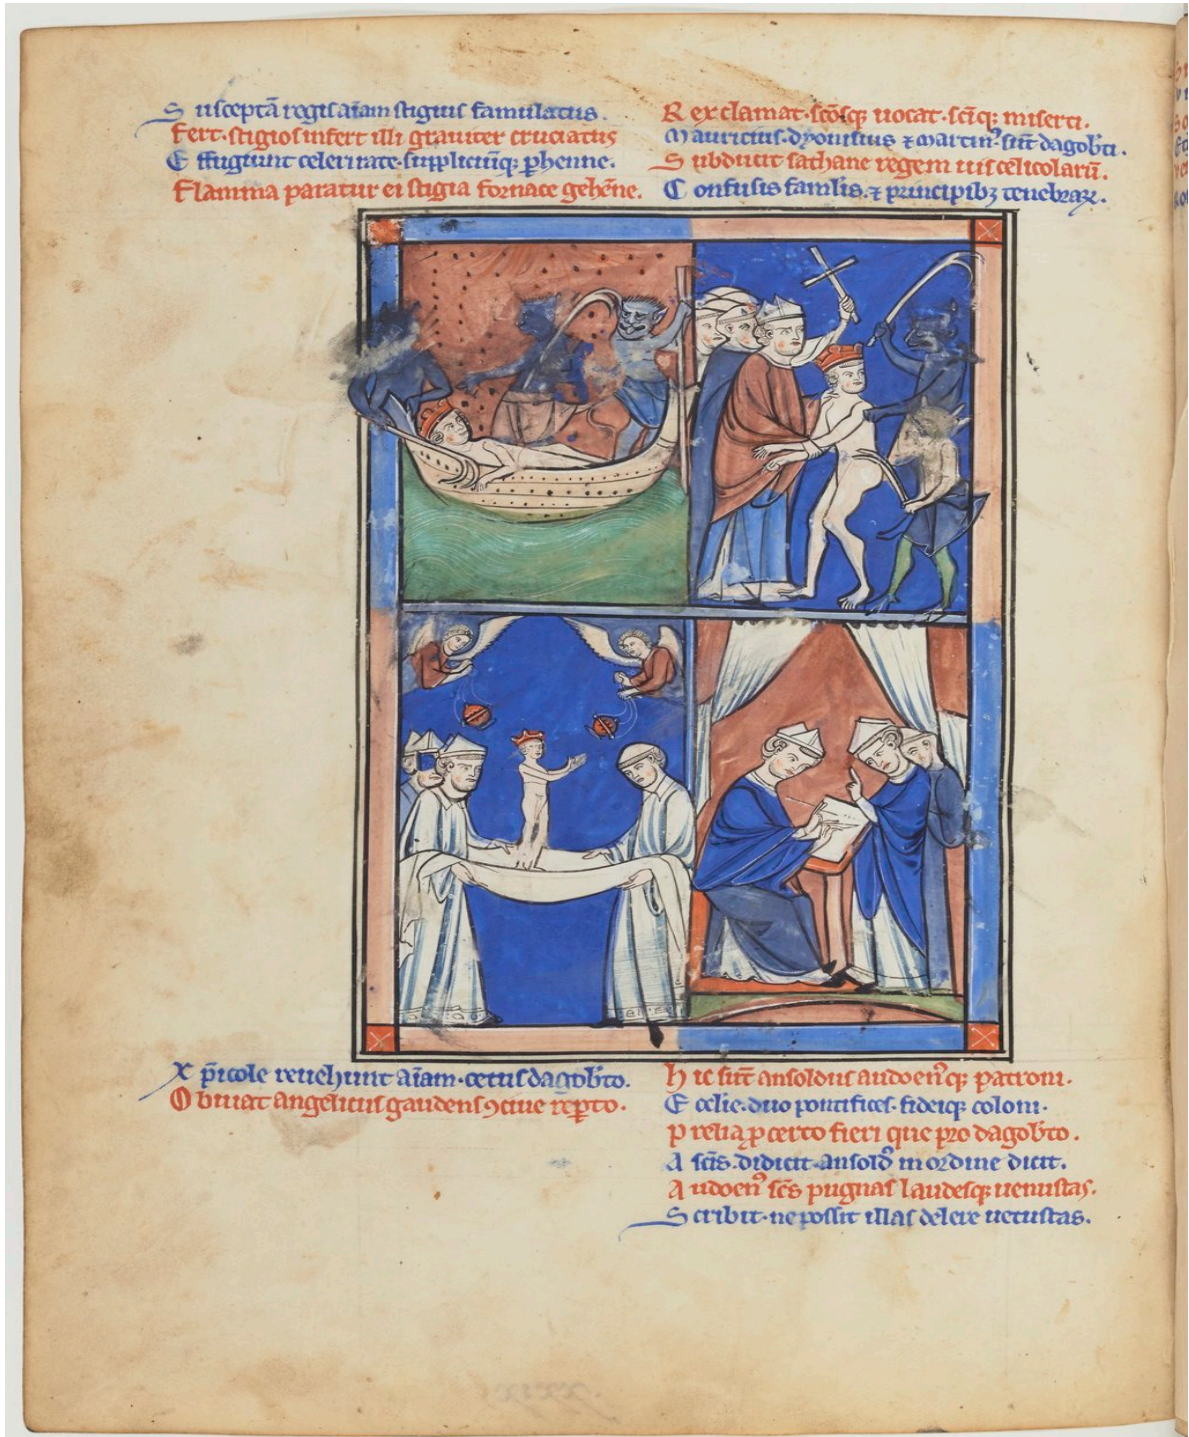 Susceptā regis aīam stigius famulatus.
Fert. stigios infert illi graviter cruciatus
Effugiunt celeri rate. suppliciūq; ꝑhenne.
Flamma paratur ei stigia fornace gehēne.
Rex clamat. scōsq; uocat. scīq; miserti.
Mauricius. dyonisius ⁊ martinꝰ. sūt dagobti.
Subducūt sathane regem uis celicolarū.
Confusis famlis. ⁊ principibꝫ tenebraꝝ.
Xp̄icole reuehunt aīam. cetus dagobto.
Obuiat angelicus gaudens ꝯciue reꝑto.
Hic sūt ansoldus audoenꝰq; patroni.
Ecclie. duo pontifices. fideiq; coloni.
Prelia ꝓ certo fieri que pro dagobto.
A scīs. didicit. ansoldꝰ in ordine dicit.
Audoenꝰ scs pugnas laudesq; uenustas.
Scribit. ne possit illas delere uetustas.